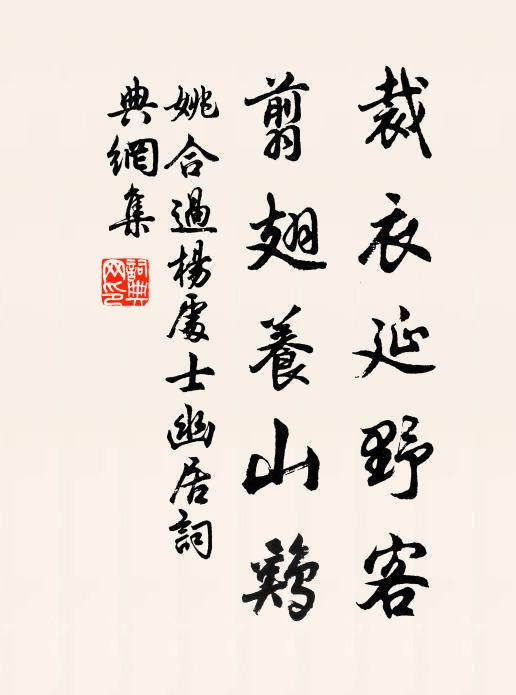 裁衣延野客
翦翅養山鷄
姚合過楊處士幽居詞
典網集
詞典
网印